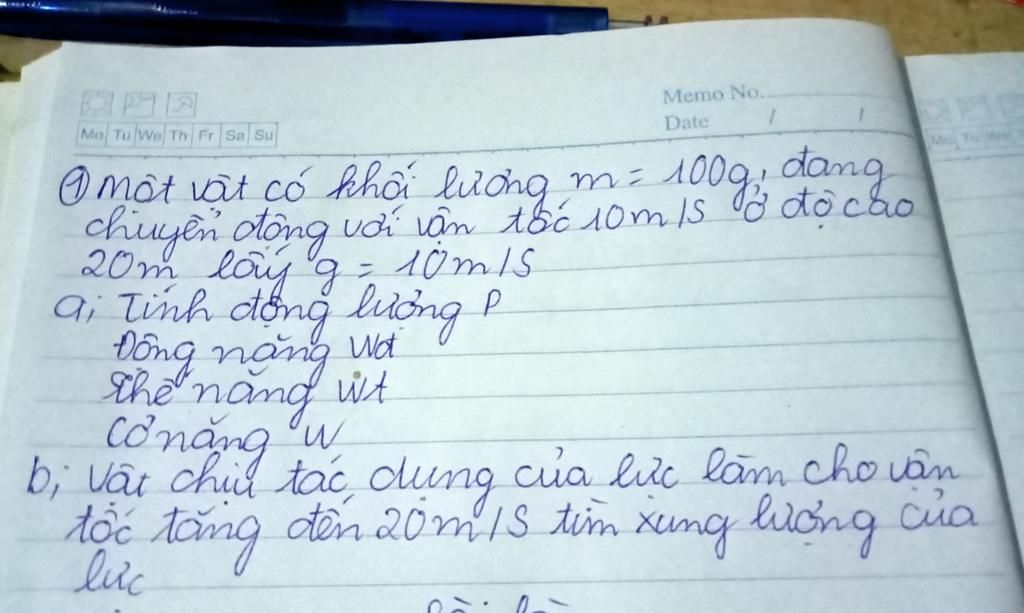 Memo No.
Date / /
Mo Tu We Th Fr Sa Su
① Một vật có khối lượng m = 100g, đang
chuyển động với vận tốc 10m/s ở độ cao
20m lấy g = 10m/s
a; Tính động lượng P
Động năng Wđ
Thế năng Wt
Cơ năng W
b; Vật chịu tác dụng của lực làm cho vận
tốc tăng đến 20m/s tìm xung lượng của
lực